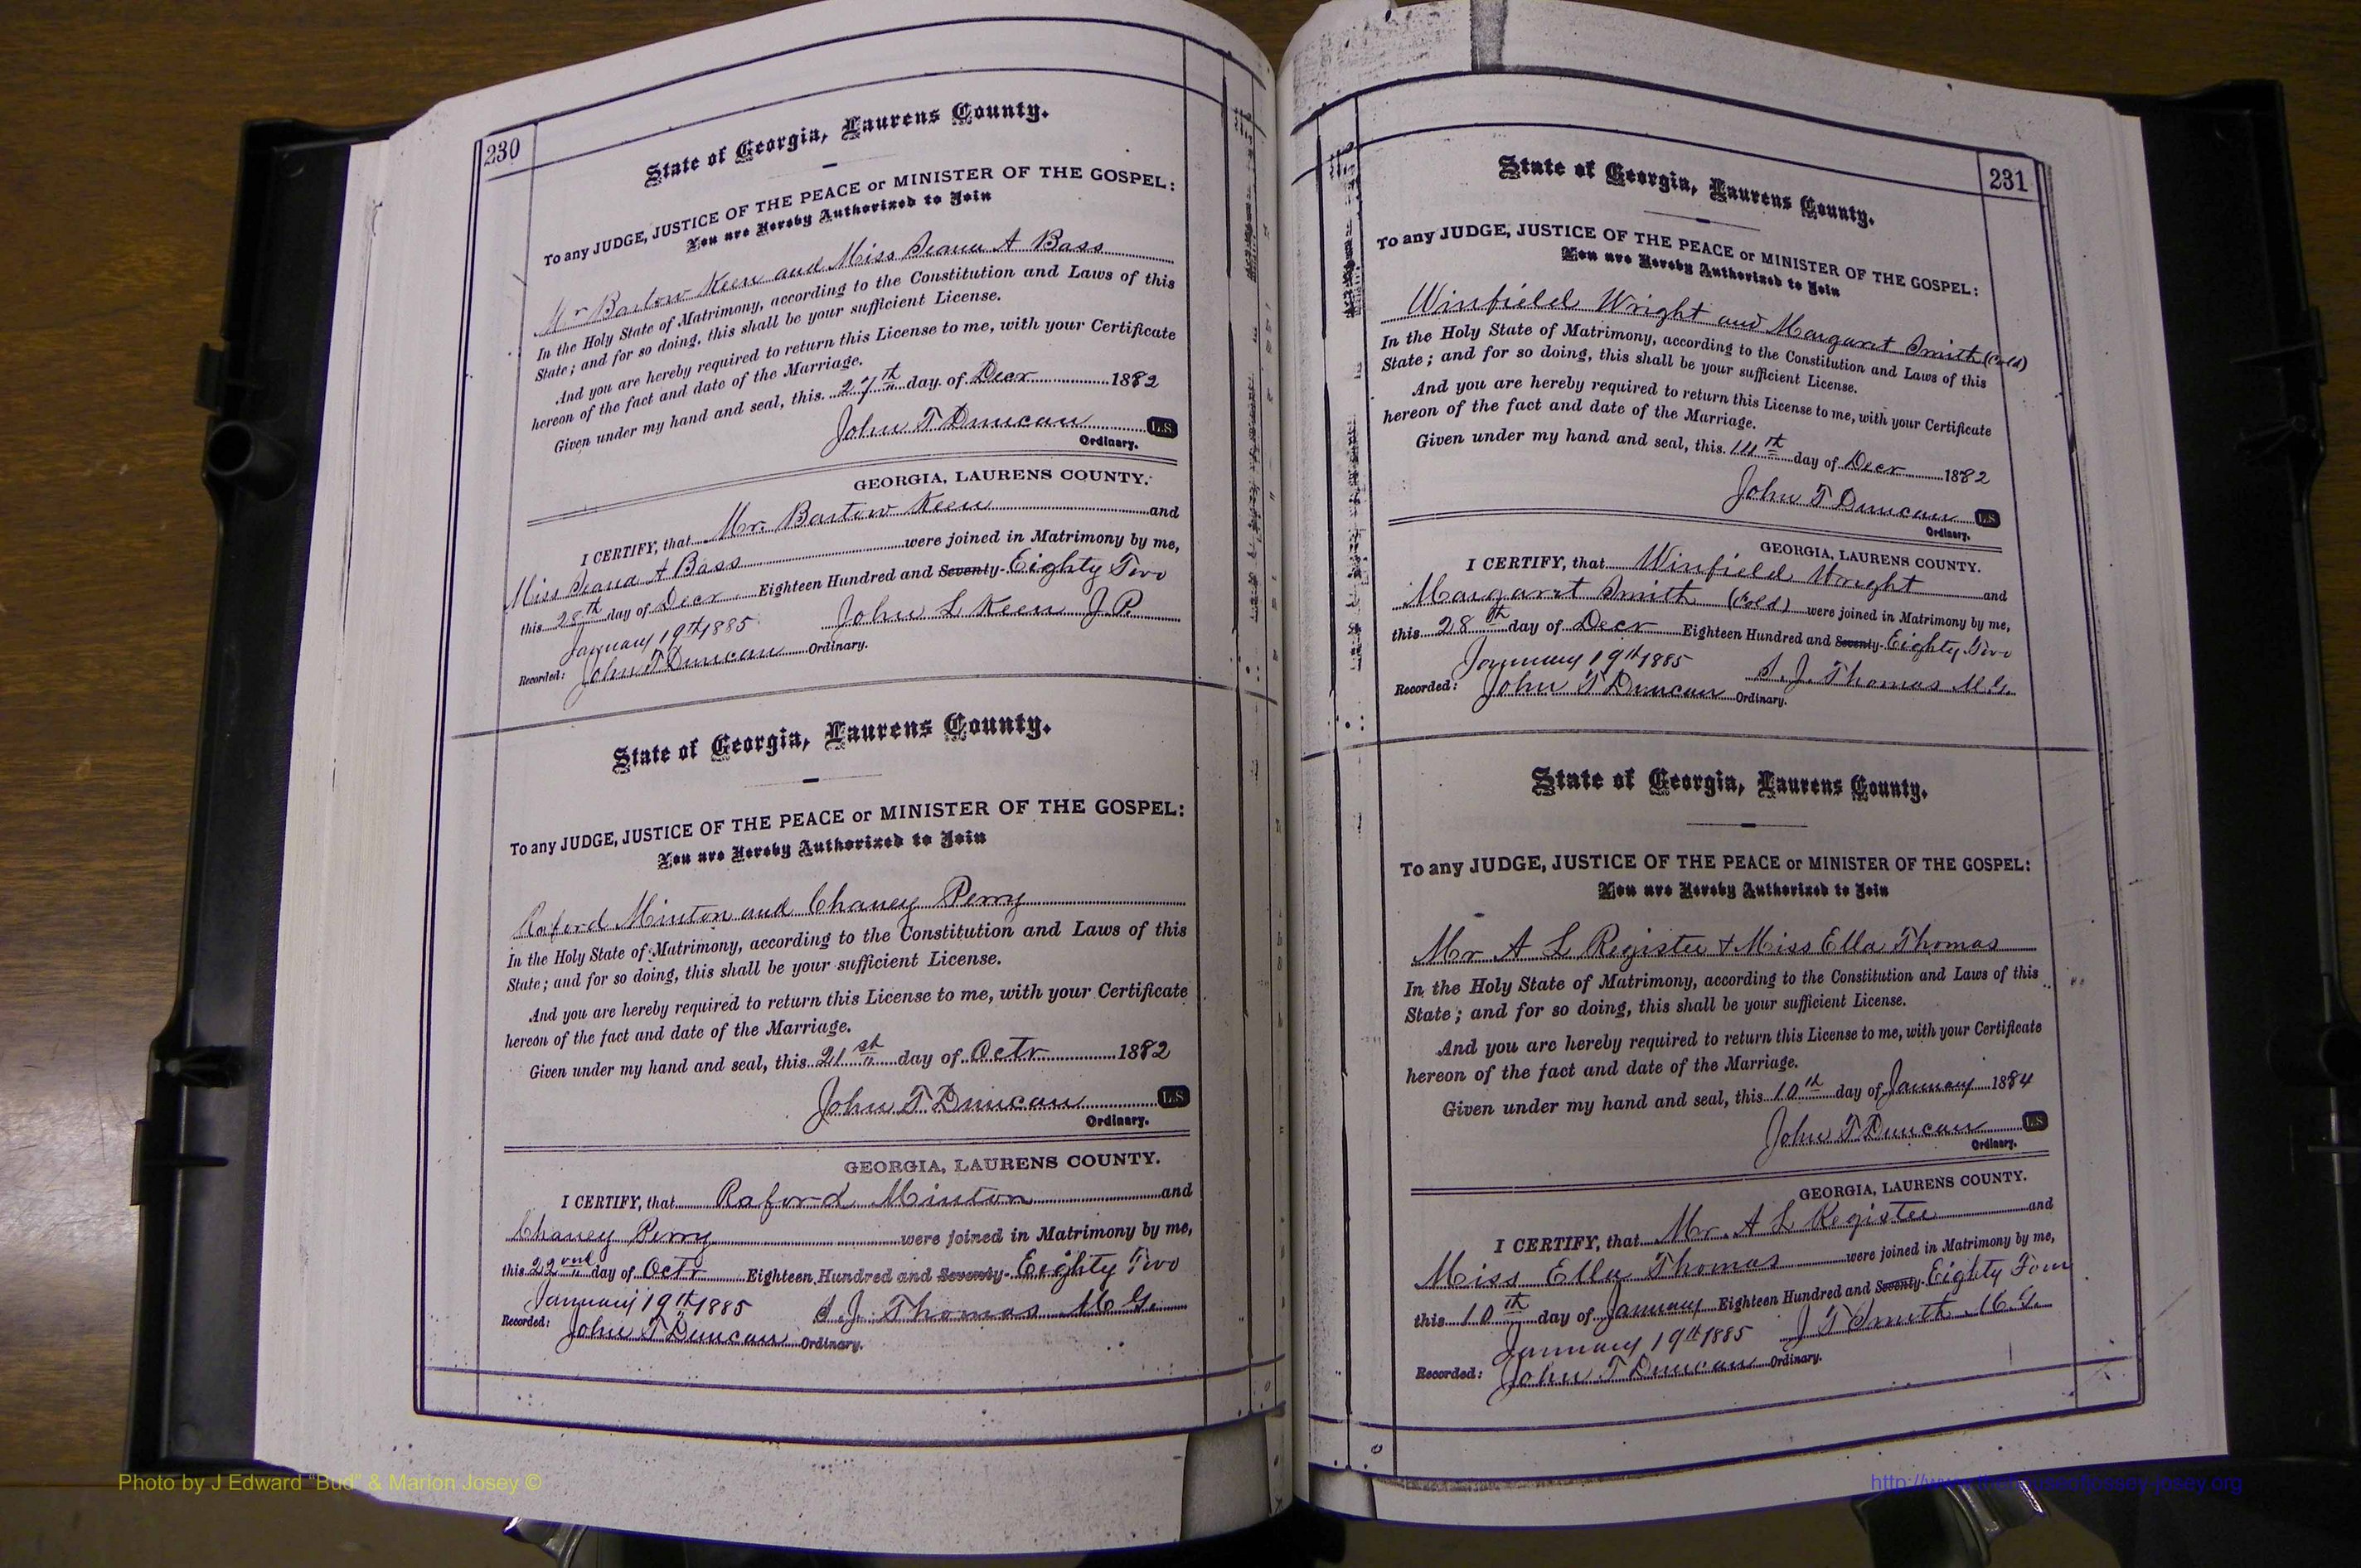 230
State of Georgia, Laurens County.
To any JUDGE, JUSTICE OF THE PEACE or MINISTER OF THE GOSPEL:
You are Hereby Authorized to Join
Mr Bartow Keen and Miss A Bass
In the Holy State of Matrimony, according to the Constitution and Laws of this
State; and for so doing, this shall be your sufficient License.
And you are hereby required to return this License to me, with your Certificate
hereon of the fact and date of the Marriage.
Given under my hand and seal, this 27th day of Decr 1882
John T Duncan L.S.
Ordinary.
GEORGIA, LAURENS COUNTY.
I CERTIFY, that Mr. Bartow Keen and
Miss A Bass were joined in Matrimony by me,
this 28th day of Decr Eighteen Hundred and Seventy- Eighty Two
January 19th 1885 John L Keen J.P.
Recorded: John T Duncan Ordinary.
State of Georgia, Laurens County.
To any JUDGE, JUSTICE OF THE PEACE or MINISTER OF THE GOSPEL:
You are Hereby Authorized to Join
Raford Minton and Chaney Perry
In the Holy State of Matrimony, according to the Constitution and Laws of this
State; and for so doing, this shall be your sufficient License.
And you are hereby required to return this License to me, with your Certificate
hereon of the fact and date of the Marriage.
Given under my hand and seal, this 21st day of Octr 1882
John T Duncan L.S.
Ordinary.
GEORGIA, LAURENS COUNTY.
I CERTIFY, that Raford Minton and
Chaney Perry were joined in Matrimony by me,
this 22nd day of Octr Eighteen Hundred and Seventy- Eighty Two
January 19th 1885 S. J. Thomas M.G.
Recorded: John T Duncan Ordinary.
231
State of Georgia, Laurens County.
To any JUDGE, JUSTICE OF THE PEACE or MINISTER OF THE GOSPEL:
You are Hereby Authorized to Join
Winfield Wright and Margaret Smith (Cold)
In the Holy State of Matrimony, according to the Constitution and Laws of this
State; and for so doing, this shall be your sufficient License.
And you are hereby required to return this License to me, with your Certificate
hereon of the fact and date of the Marriage.
Given under my hand and seal, this day of Decr 1882
John T Duncan L.S.
Ordinary.
GEORGIA, LAURENS COUNTY.
I CERTIFY, that Winfield Wright and
Margaret Smith (Cold) were joined in Matrimony by me,
this 28th day of Decr Eighteen Hundred and Seventy- Eighty Two
January 19th 1885 S. J. Thomas M.G.
Recorded: John T Duncan Ordinary.
State of Georgia, Laurens County.
To any JUDGE, JUSTICE OF THE PEACE or MINISTER OF THE GOSPEL:
You are Hereby Authorized to Join
Mr A L Register + Miss Ella Thomas
In the Holy State of Matrimony, according to the Constitution and Laws of this
State; and for so doing, this shall be your sufficient License.
And you are hereby required to return this License to me, with your Certificate
hereon of the fact and date of the Marriage.
Given under my hand and seal, this 10th day of January 1884
John T Duncan L.S.
Ordinary.
GEORGIA, LAURENS COUNTY.
I CERTIFY, that Mr. A L Register and
Miss Ella Thomas were joined in Matrimony by me,
this 10th day of January Eighteen Hundred and Seventy- Eighty Four
January 19th 1885 J T Smith M.G.
Recorded: John T Duncan Ordinary.
Photo by J Edward "Bud" & Marion Josey ©
http://www.thehouseofjossey-josey.org